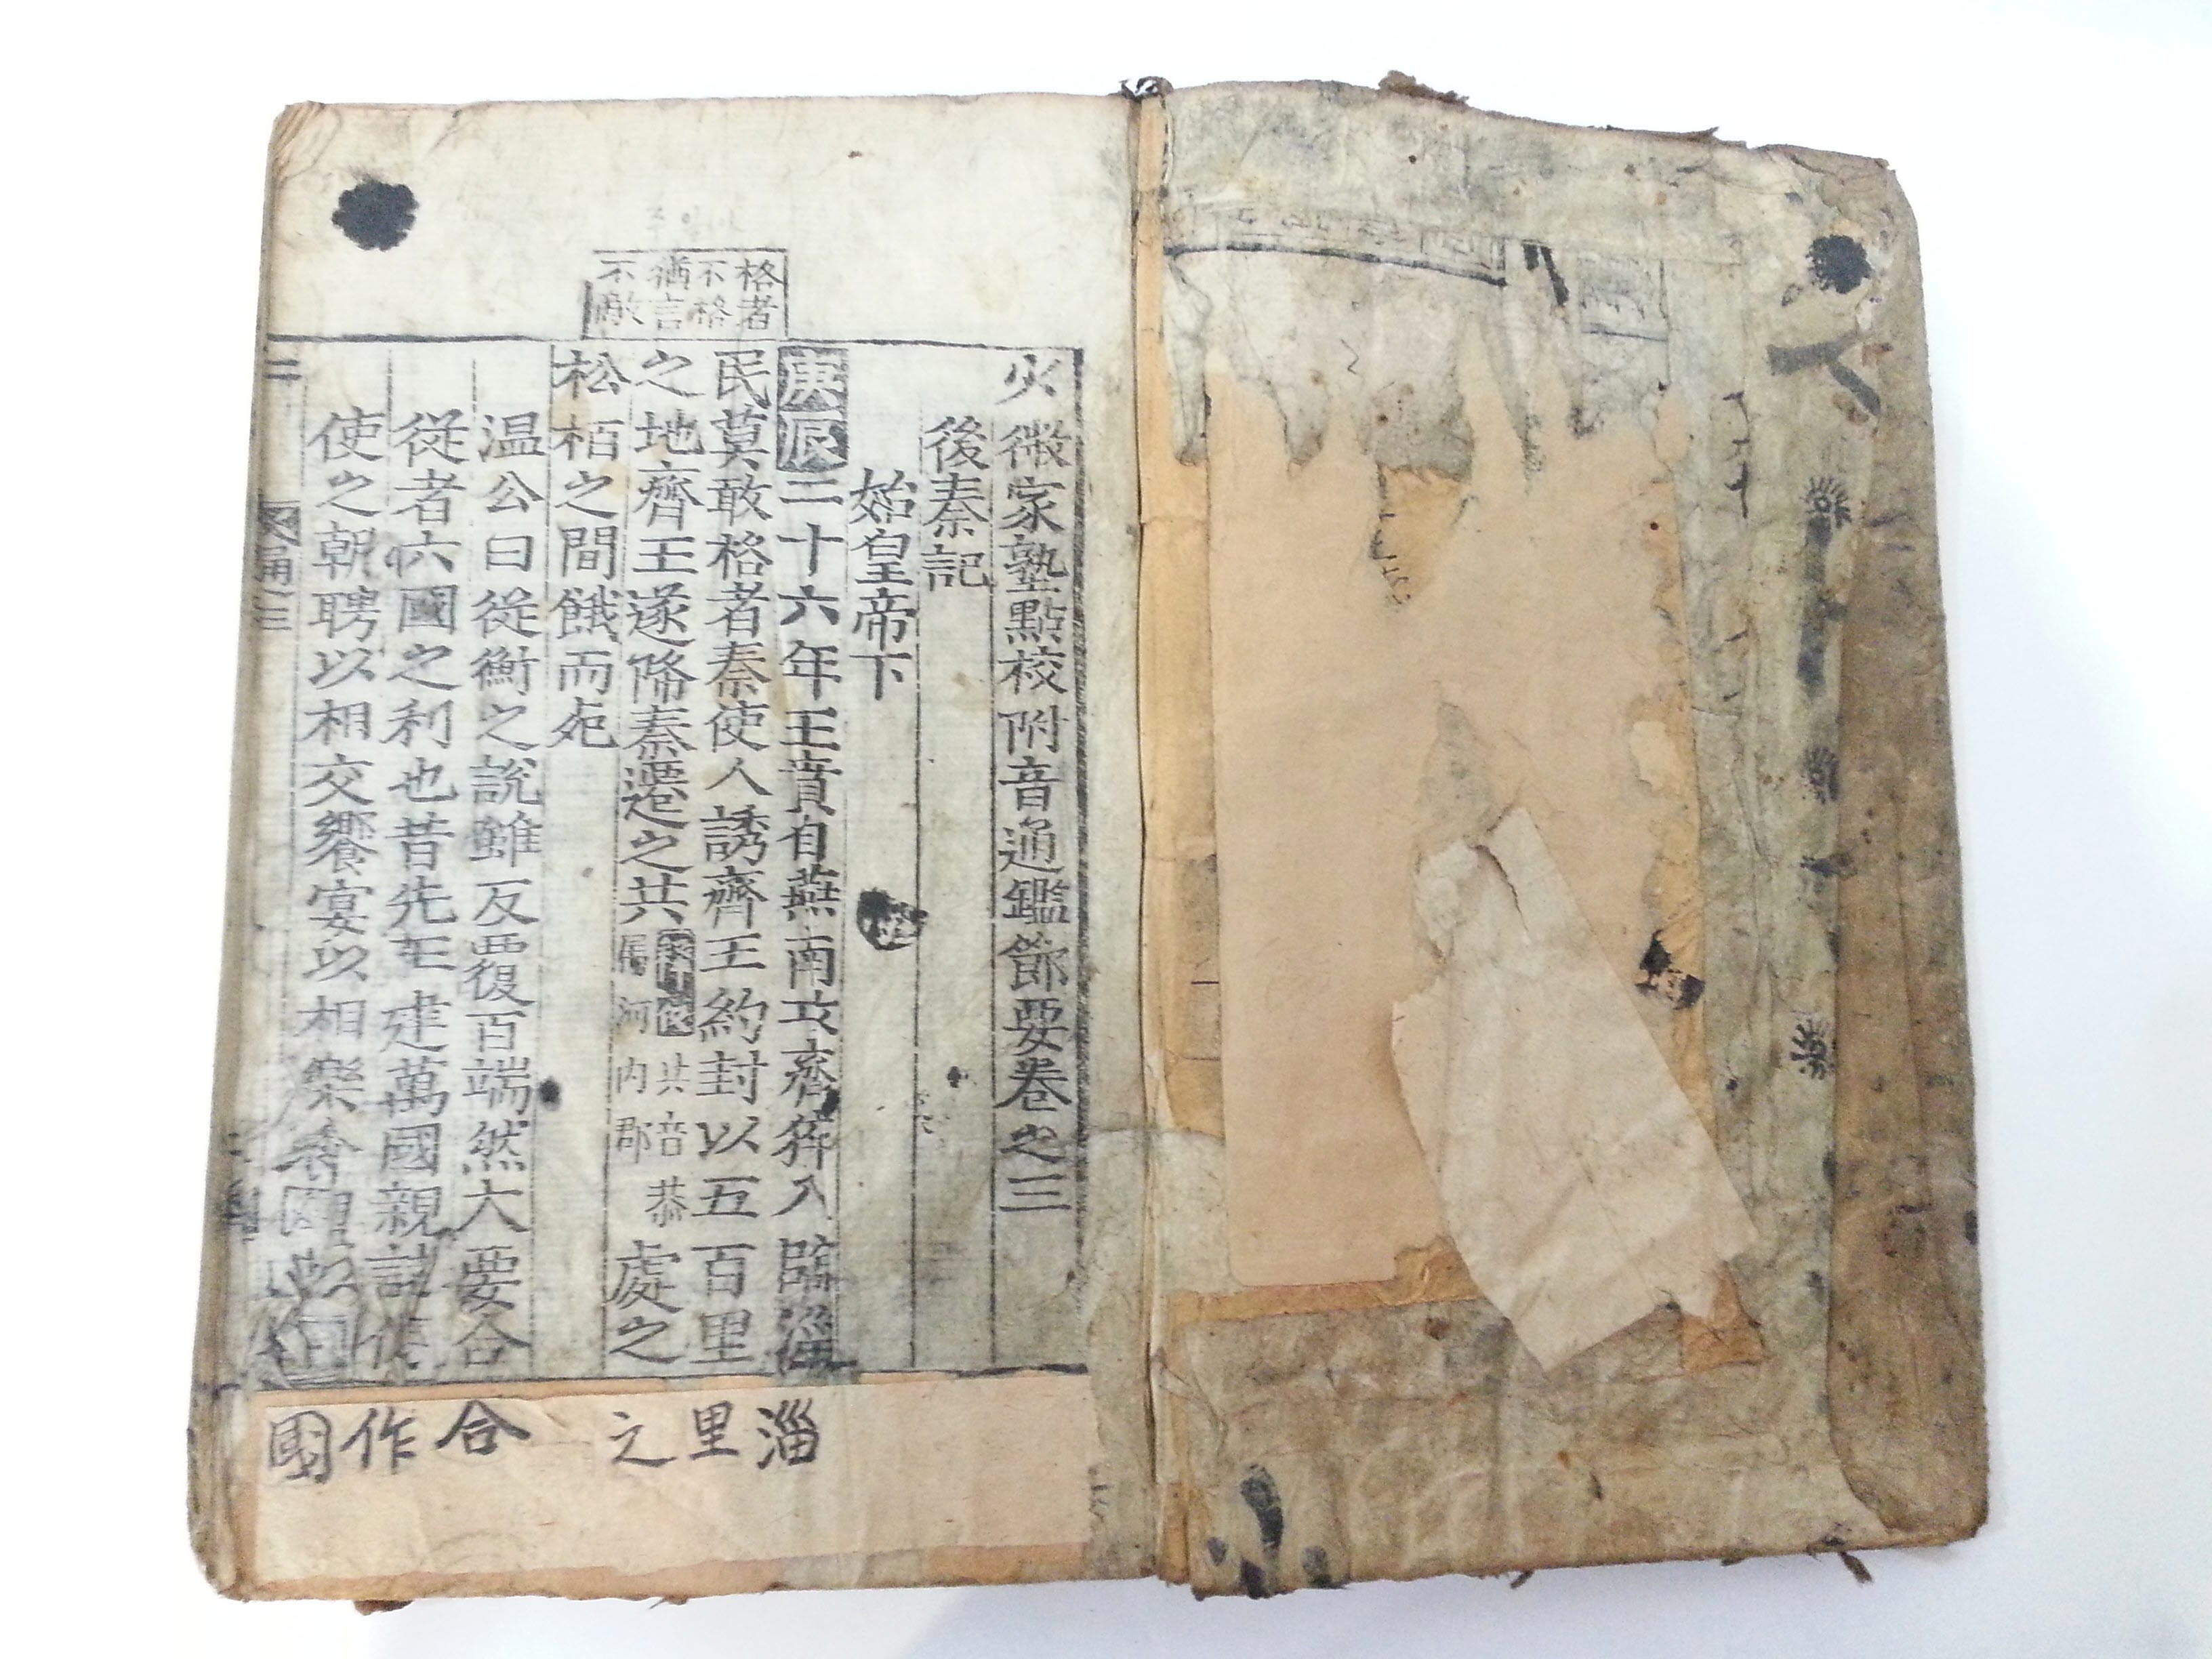 格者
不格
猶言
不敵
少微家塾點校附音通鑑節要卷之三
後秦記
始皇帝下
庚辰二十六年王賁自燕南攻齊猝入臨淄
民莫敢格者秦使人誘齊王約封以五百里
之地齊王遂降秦遷之共共音恭屬河內郡處之
松栢之間餓而死
温公曰從衡之說雖反覆百端然大要合
從者六國之利也昔先王建萬國親諸侯
使之朝聘以相交饗宴以相樂會盟以
淄
里
之
合
作
國